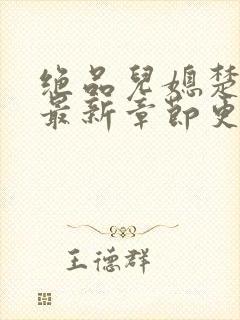 绝品儿媳楚
最新章节更
王德群